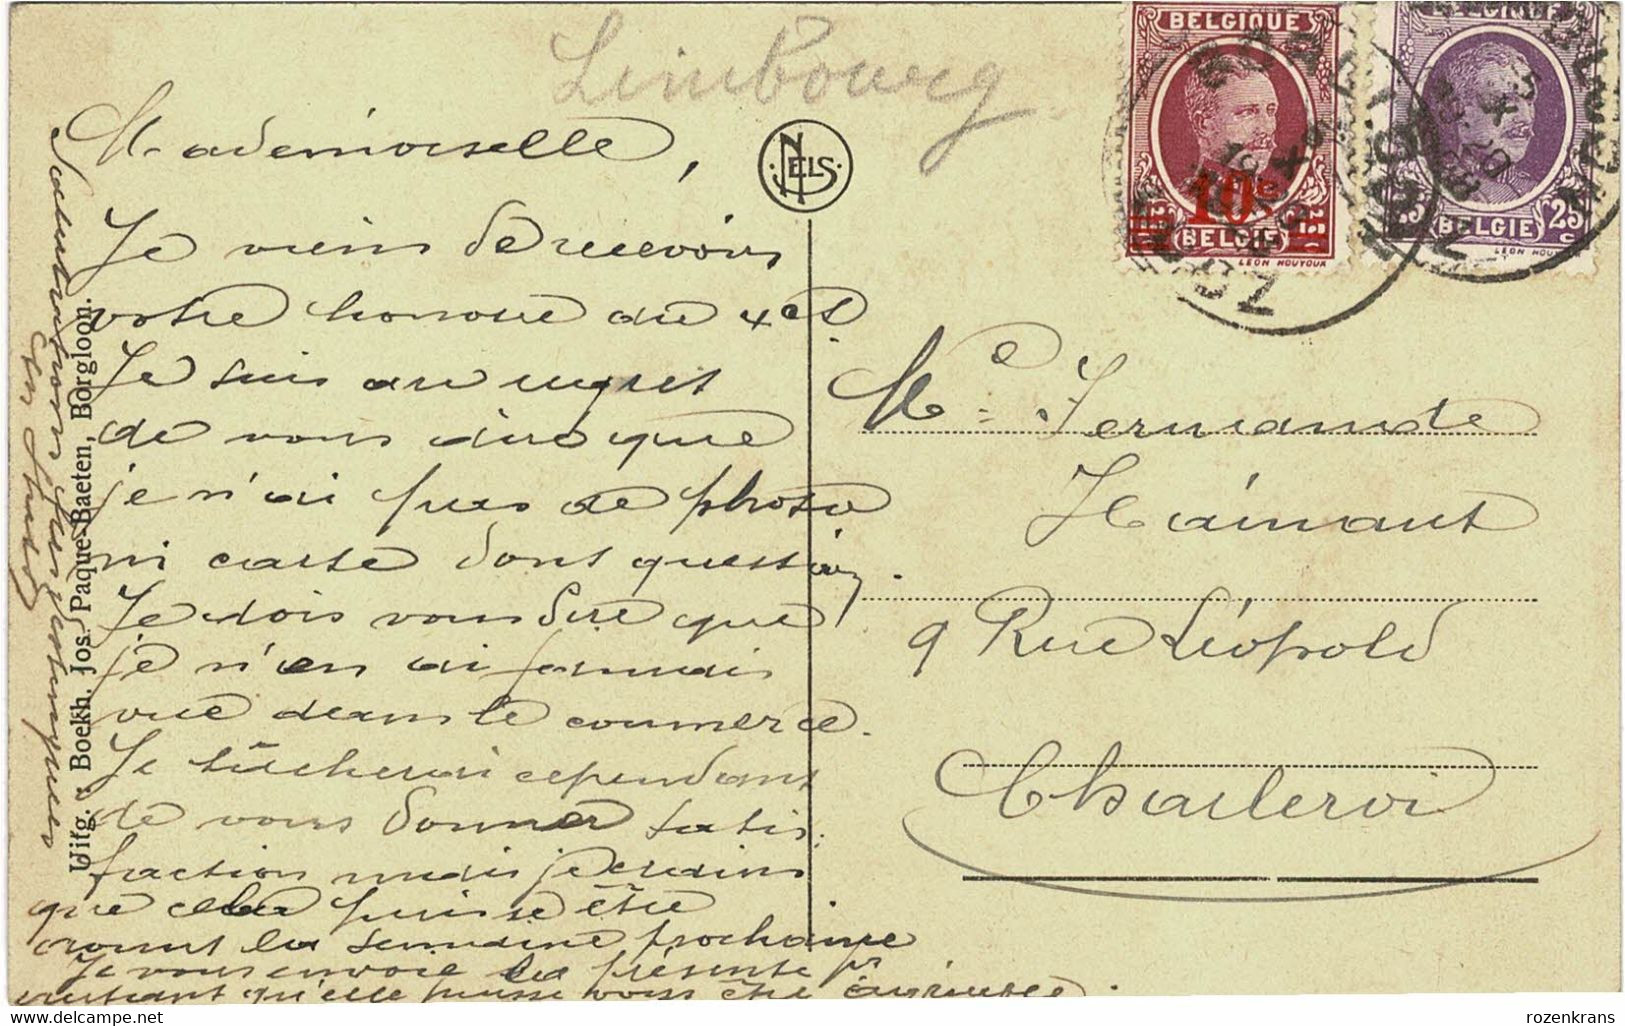 Limbourg
Mademoiselle,
Je viens de recevoir
votre honoree du 4 ct
Je suis au regret
de vous dire que
je n'ai pas de photo
ni carte dont question.
Je dois vous dire que
je n'en ai jamais
vue dans le commerce.
Je tâcherai cependant
de vous donner satis:
faction mais je crains
que cela puisse être
avant la semaine prochaine
Je vous envoie la présente pr
qu'elle puisse vous être agréable.
Salutations
Uitg. : Boekh. Jos. Paque-Baeten, Borgloon.
NELS
BELGIQUE
10c
BELGIË
LEON HOUYOUX
BELGIQUE
25c BELGIË 25c
LEON HOUYOUX
Melle Fernande
Hainaut
9 Rue Léopold
Charleroi
rozenkrans
delcampe.net